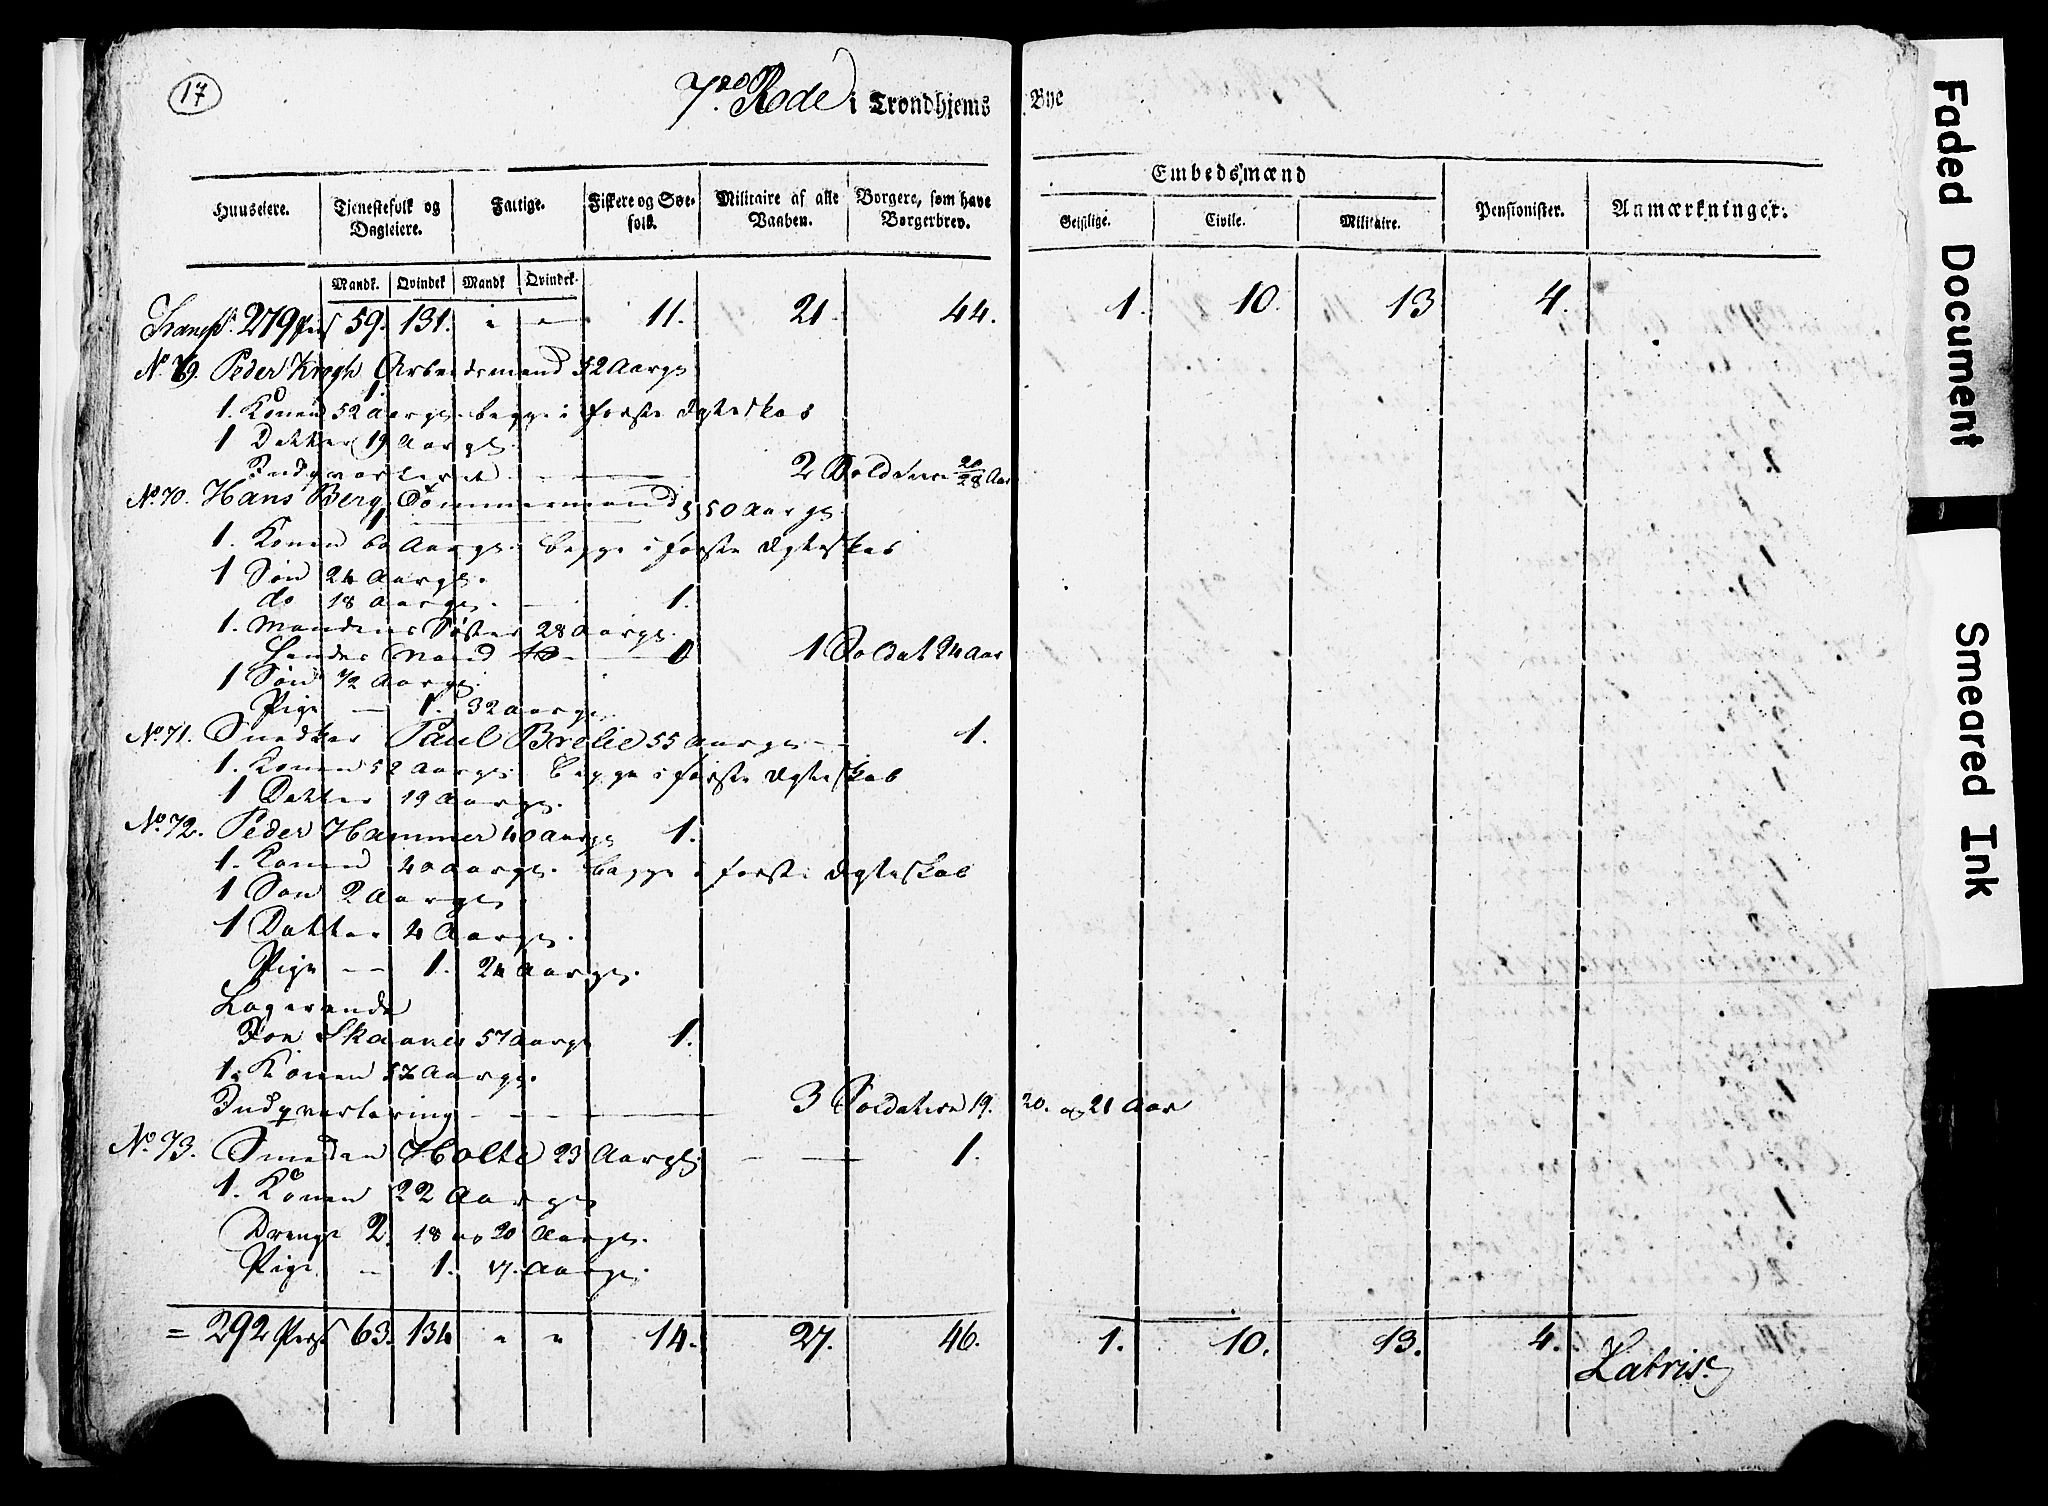 17
7de Rode i Trondhjems Bye
Huuseiere. Tjenestefolk og Dagleiere. Fattige. Fiskere og Søefolk. Militaire af alle Vaaben. Borgere, som have Borgerbrev. Embedsmænd Pensionister. Anmærkninger.
Geistlige. Civile. Militaire.
Mandk. Qvindek Mandk Qvindek.
Transpt. 279 Pers 59. 131. " " 11. 21. 44. 1. 10. 13 4.
No. 69. Peder Krogh Arbeidsmand 52 Aargl
1
1. Konen 52 Aargl. begge i første Ægteskab
1 Datter 19 Aargl.
Indqvarteret — — 2 Soldater 20/28 Aar
No. 70. Hans Berg Tømmermand 50 Aargl.
1
1. Konen 60 Aargl. begge i første Ægteskab
1 Søn 24 Aargl.
do 18 Aargl. — 1.
1. Mandens Søster 28 Aargl.
Hendes Mand — 1 Soldat 24 Aar
1 Søn 1/2 Aargl.
Pige — 1. 32 Aargl.
No. 71. Snedker Paul Brelie 55 Aargl — 1.
1. Konen 52 Aargl. begge i første Ægteskab
1 Datter 19 Aargl.
No. 72. Peder Hammer 40 Aargl 1.
1. Konen 40 Aargl. begge i første Ægteskab
1 Søn 2 Aargl.
1 Datter 4 Aargl.
Pige — 1. 24 Aargl.
Logerende
Jon Skaanes 57 Aargl 1.
1. Konen 57 Aargl.
Indqvartering — — — 3 Soldater 19. 20. og 21 Aar
No. 73. Smeden Holte 23 Aargl. — — 1.
1. Konen 22 Aargl
Drenge 2. 18 og 20 Aargl.
Pige — 1. 17. Aargl.
= 292 Pers 63. 134 " " 14. 27. 46. 1. 10. 13. 4. Latris
Faded Document
Smeared Ink